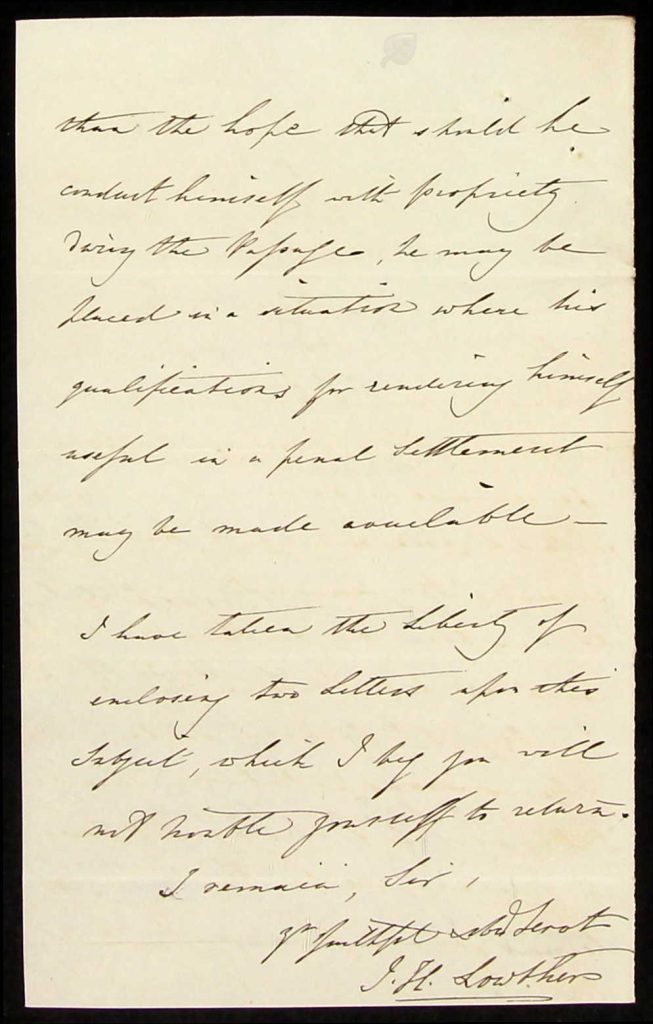 than the hope that should he
conduct himself with propriety
During the Passage, he may be
placed in a situation where his
qualifications for rendering himself
useful in a penal Settlement
may be made available —
I have taken the Liberty of
enclosing two Letters upon this
Subject, which I beg you will
not trouble yourself to return.
I remain, Sir,
yr faithful obt Servt
J. H. Lowther